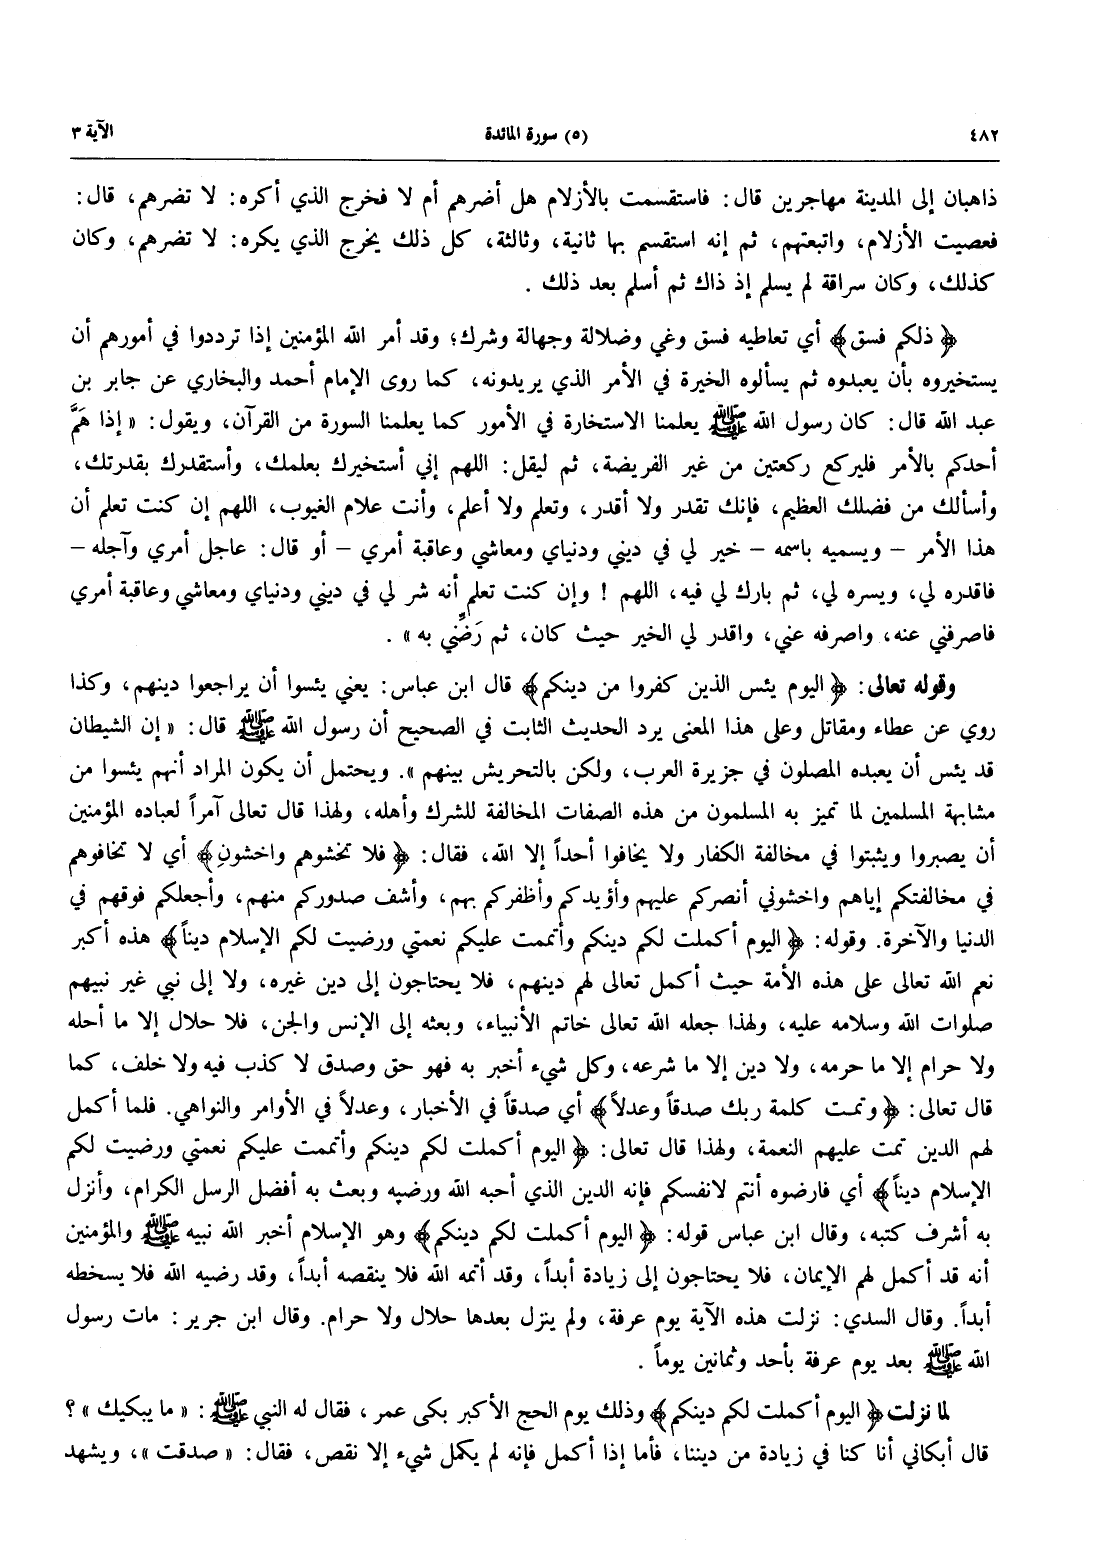 ٤٨٢ (٥) سورة المائدة الآية ٣
ذاهبان إلى المدينة مهاجرين قال: فاستقسمت بالأزلام هل أضرهم أم لا فخرج الذي أكره: لا تضرهم، قال:
فعصيت الأزلام، واتبعتهم، ثم إنه استقسم بها ثانية، وثالثة، كل ذلك يخرج الذي يكره: لا تضرهم، وكان
كذلك، وكان سراقة لم يسلم إذ ذاك ثم أسلم بعد ذلك .
﴿ ذلكم فسق﴾ أي تعاطيه فسق وغي وضلالة وجهالة وشرك؛ وقد أمر الله المؤمنين إذا ترددوا في أمورهم أن
يستخيروه بأن يعبدوه ثم يسألوه الخيرة في الأمر الذي يريدونه، كما روى الإمام أحمد والبخاري عن جابر بن
عبد الله قال: كان رسول الله ﷺ يعلمنا الاستخارة في الأمور كما يعلمنا السورة من القرآن، ويقول: « إذا هَمَّ
أحدكم بالأمر فليركع ركعتين من غير الفريضة، ثم ليقل: اللهم إني أستخيرك بعلمك، وأستقدرك بقدرتك،
وأسألك من فضلك العظيم، فإنك تقدر ولا أقدر، وتعلم ولا أعلم، وأنت علام الغيوب، اللهم إن كنت تعلم أن
هذا الأمر – ويسميه باسمه – خير لي في ديني ودنياي ومعاشي وعاقبة أمري – أو قال: عاجل أمري وآجله –
فاقدره لي، ويسره لي، ثم بارك لي فيه، اللهم ! وإن كنت تعلم أنه شر لي في ديني ودنياي ومعاشي وعاقبة أمري
فاصرفني عنه، واصرفه عني، واقدر لي الخير حيث كان، ثم رَضِّني به » .
وقوله تعالى: ﴿ اليوم يئس الذين كفروا من دينكم﴾ قال ابن عباس: يعني يئسوا أن يراجعوا دينهم، وكذا
روي عن عطاء ومقاتل وعلى هذا المعنى يرد الحديث الثابت في الصحيح أن رسول الله ﷺ قال: « إن الشيطان
قد يئس أن يعبده المصلون في جزيرة العرب، ولكن بالتحريش بينهم ». ويحتمل أن يكون المراد أنهم يئسوا من
مشابهة المسلمين لما تميز به المسلمون من هذه الصفات المخالفة للشرك وأهله، ولهذا قال تعالى آمراً لعباده المؤمنين
أن يصبروا ويثبتوا في مخالفة الكفار ولا يخافوا أحداً إلا الله، فقال: ﴿ فلا تخشوهم واخشونِ﴾ أي لا تخافوهم
في مخالفتكم إياهم واخشوني أنصركم عليهم وأؤيدكم وأظفركم بهم، وأشف صدوركم منهم، وأجعلكم فوقهم في
الدنيا والآخرة. وقوله: ﴿ اليوم أكملت لكم دينكم وأتممت عليكم نعمتي ورضيت لكم الإسلام ديناً﴾ هذه أكبر
نعم الله تعالى على هذه الأمة حيث أكمل تعالى لهم دينهم، فلا يحتاجون إلى دين غيره، ولا إلى نبي غير نبيهم
صلوات الله وسلامه عليه، ولهذا جعله الله تعالى خاتم الأنبياء، وبعثه إلى الإنس والجن، فلا حلال إلا ما أحله
ولا حرام إلا ما حرمه، ولا دين إلا ما شرعه، وكل شيء أخبر به فهو حق وصدق لا كذب فيه ولا خلف، كما
قال تعالى: ﴿ وتمت كلمة ربك صدقاً وعدلاً﴾ أي صدقاً في الأخبار، وعدلاً في الأوامر والنواهي. فلما أكمل
لهم الدين تمت عليهم النعمة، ولهذا قال تعالى: ﴿ اليوم أكملت لكم دينكم وأتممت عليكم نعمتي ورضيت لكم
الإسلام ديناً﴾ أي فارضوه أنتم لانفسكم فإنه الدين الذي أحبه الله ورضيه وبعث به أفضل الرسل الكرام، وأنزل
به أشرف كتبه، وقال ابن عباس قوله: ﴿ اليوم أكملت لكم دينكم﴾ وهو الإسلام أخبر الله نبيه ﷺ والمؤمنين
أنه قد أكمل لهم الإيمان، فلا يحتاجون إلى زيادة أبداً، وقد أتمه الله فلا ينقصه أبداً، وقد رضيه الله فلا يسخطه
أبداً. وقال السدي: نزلت هذه الآية يوم عرفة، ولم ينزل بعدها حلال ولا حرام. وقال ابن جرير: مات رسول
الله ﷺ بعد يوم عرفة بأحد وثمانين يوماً .
لما نزلت ﴿ اليوم أكملت لكم دينكم﴾ وذلك يوم الحج الأكبر بكى عمر، فقال له النبي ﷺ: « ما يبكيك »؟
قال أبكاني أنا كنا في زيادة من ديننا، فأما إذا أكمل فإنه لم يكمل شيء إلا نقص، فقال: « صدقت »، ويشهد